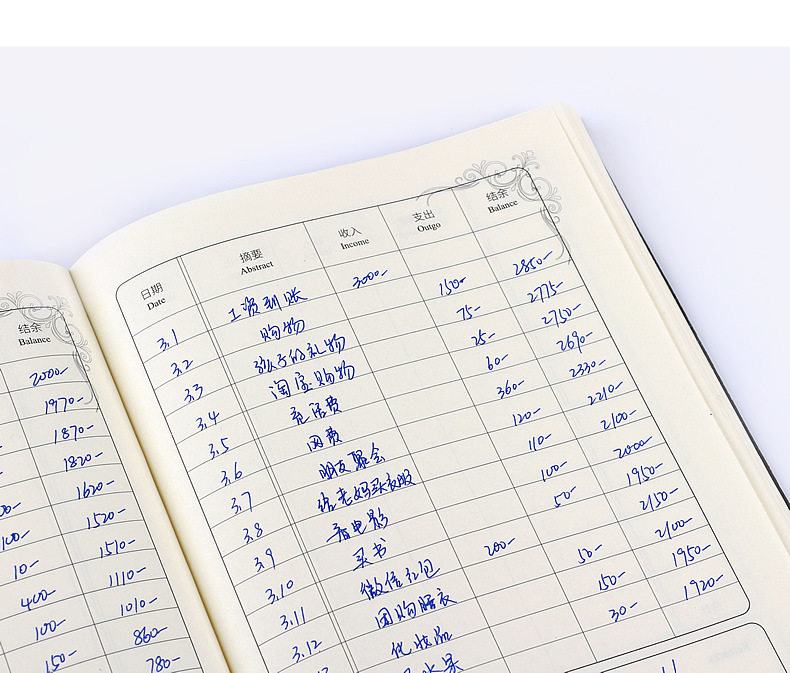 结余
Balance
2000-
1970-
1870-
1820-
00- 1620-
100- 1520-
10- 1510-
400- 1110-
100- 1010-
150- 860-
780-
日期 摘要 收入 支出 结余
Date Abstract Income Outgo Balance
3.1 工资到账 3000-
3.2 购物 150- 2850-
3.3 孩子的礼物 75- 2775-
3.4 淘宝购物 25- 2750-
3.5 充话费 60- 2690-
3.6 网费 360- 2330-
3.7 朋友聚会 120- 2210-
3.8 给老妈买衣服 110- 2100-
3.9 看电影 100- 2000-
3.10 买书 50- 1950-
3.11 微信红包 200- 2150-
3.12 团购睡衣 50- 2100-
化妆品 150- 1950-
水果 30- 1920-